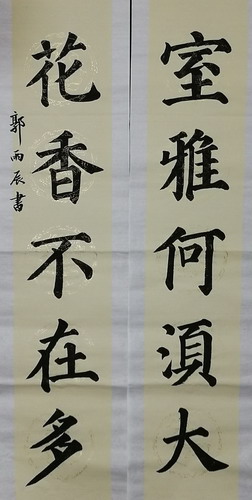 室雅何須大
花香不在多
郭雨辰書